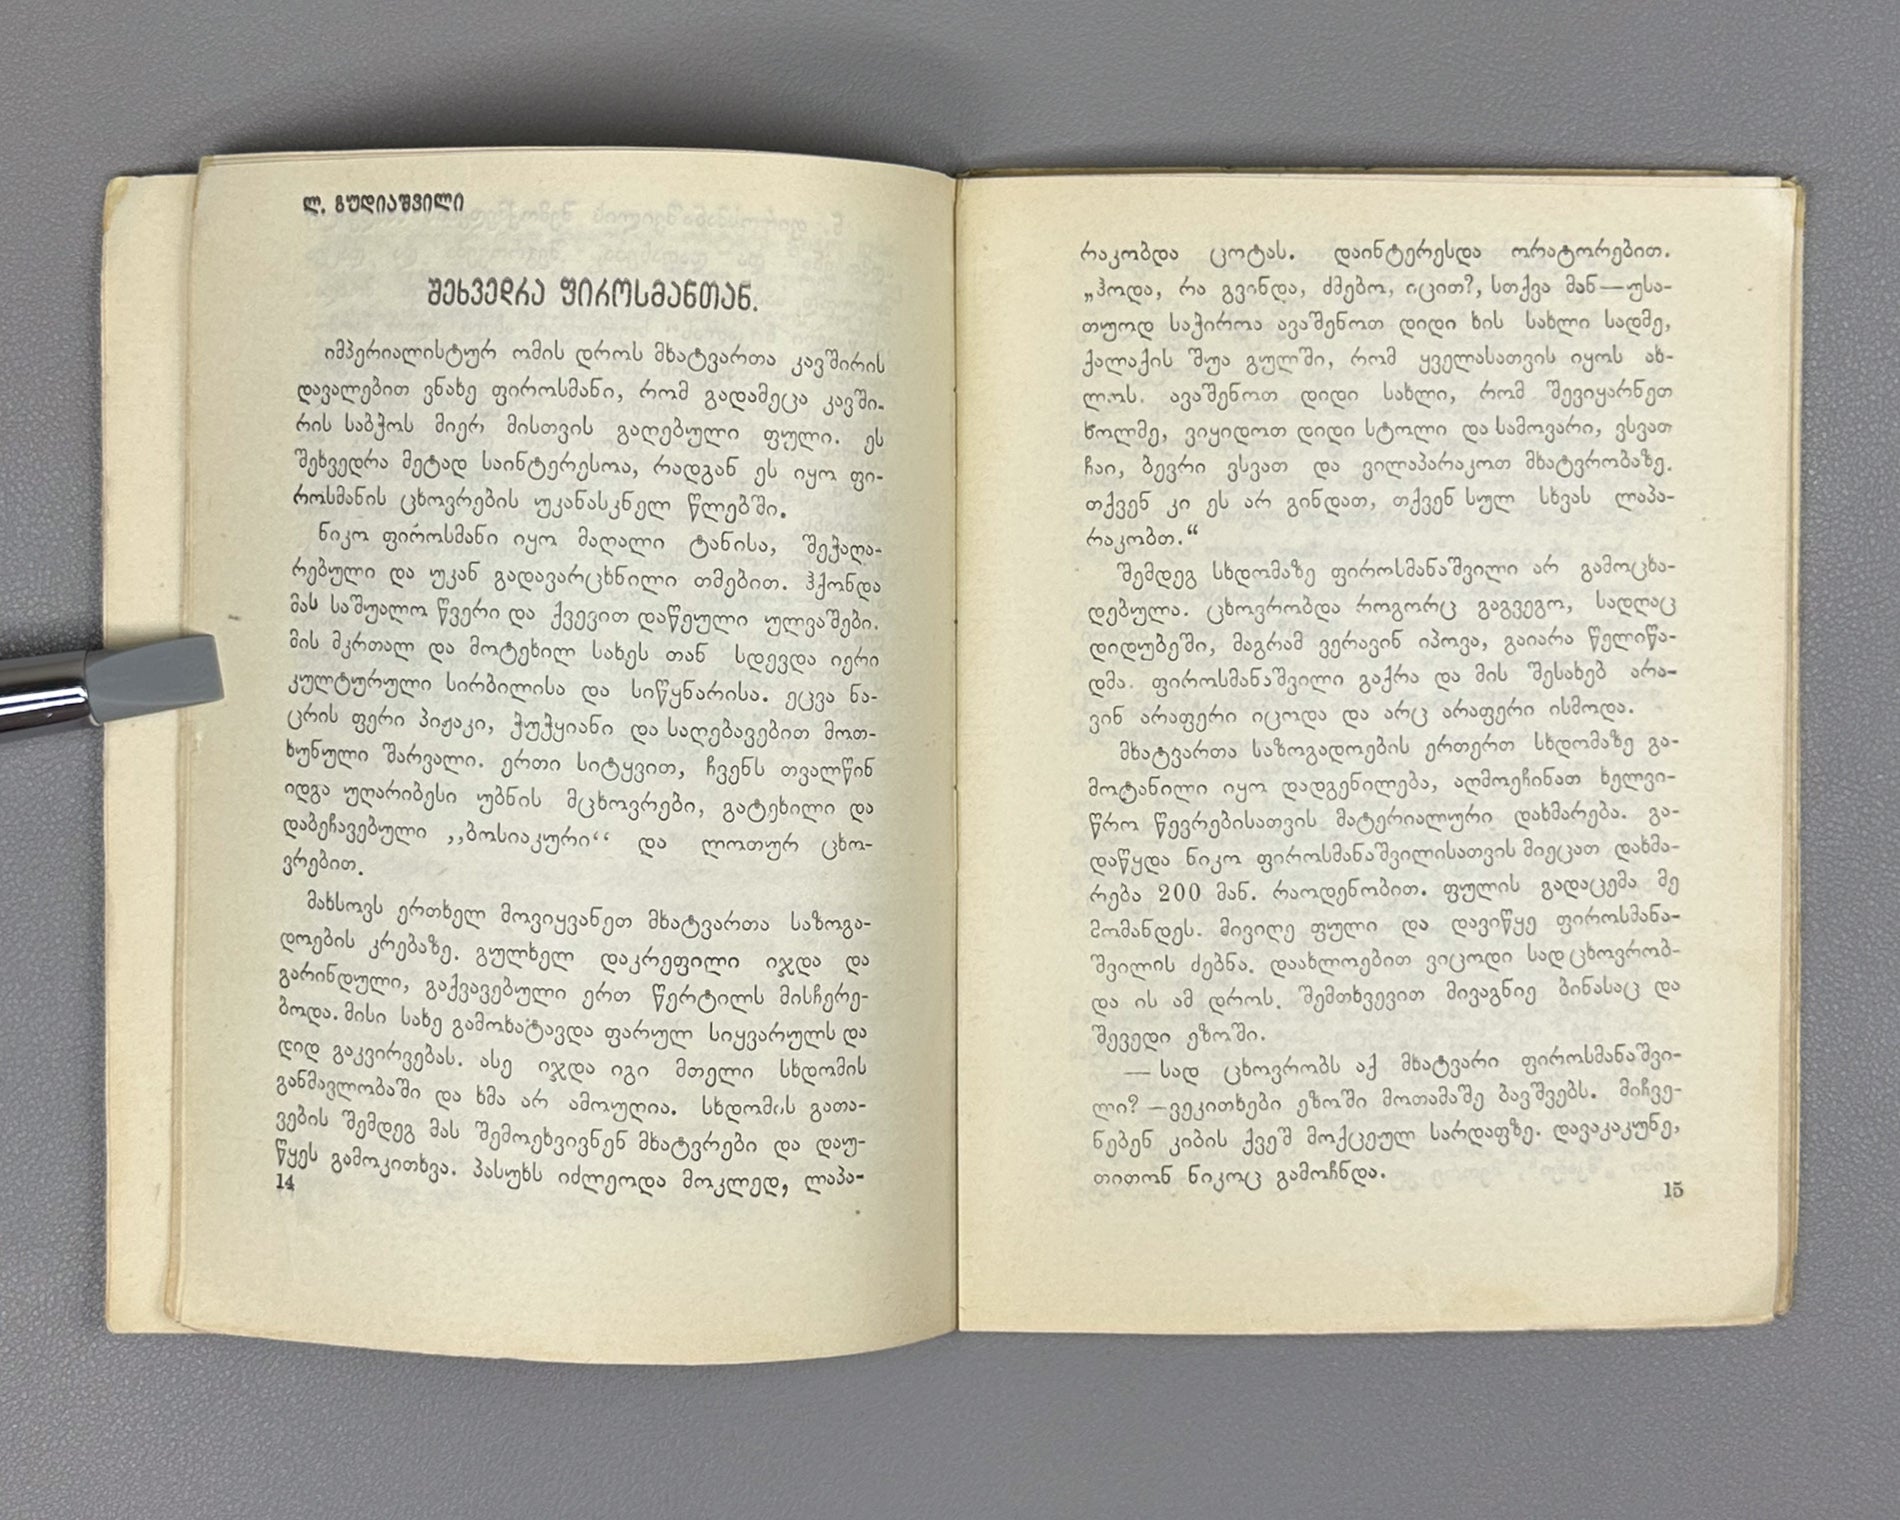 ლ. გუდიაშვილი
შეხვედრა ფიროსმანთან.
იმპერიალისტურ ომის დროს მხატვართა კავშირის
დავალებით ვნახე ფიროსმანი, რომ გადამეცა კავში-
რის საბჭოს მიერ მისთვის გაღებული ფული. ეს
შეხვედრა მეტად საინტერესოა, რადგან ეს იყო ფი-
როსმანის ცხოვრების უკანასკნელ წლებში.
ნიკო ფიროსმანი იყო მაღალი ტანისა, შეჭაღა-
რებული და უკან გადავარცხნილი თმებით. ჰქონდა
მას საშუალო წვერი და ქვევით დაწეული ულვაშები.
მის მკრთალ და მოტეხილ სახეს თან სდევდა იერი
კულტურული სირბილისა და სიწყნარისა. ეცვა ნა-
ცრის ფერი პიჟაკი, ჭუჭყიანი და საღებავებით მოთ-
ხუნული შარვალი. ერთი სიტყვით, ჩვენს თვალწინ
იდგა უღარიბესი უბნის მცხოვრები, გატეხილი და
დაბეჩავებული ,,ბოსიაკური“ და ლოთურ ცხო-
ვრებით.
მახსოვს ერთხელ მოვიყვანეთ მხატვართა საზოგა-
დოების კრებაზე. გულხელ დაკრეფილი იჯდა და
გარინდული, გაქვავებული ერთ წერტილს მისჩერე-
ბოდა. მისი სახე გამოხატავდა ფარულ სიყვარულს და
დიდ გაკვირვებას. ასე იჯდა იგი მთელი სხდომის
განმავლობაში და ხმა არ ამოუღია. სხდომის გათა-
ვების შემდეგ მას შემოეხვივნენ მხატვრები და დაუ-
წყეს გამოკითხვა. პასუხს იძლეოდა მოკლედ, ლაპა-
14
რაკობდა ცოტას. დაინტერესდა ორატორებით.
„ჰოდა, რა გვინდა, ძმებო, იცით?, სთქვა მან—უსა-
თუოდ საჭიროა ავაშენოთ დიდი ხის სახლი სადმე,
ქალაქის შუა გულში, რომ ყველასათვის იყოს ახ-
ლოს. ავაშენოთ დიდი სახლი, რომ შევიყარნეთ
ხოლმე, ვიყიდოთ დიდი სტოლი და სამოვარი, ვსვათ
ჩაი, ბევრი ვსვათ და ვილაპარაკოთ მხატვრობაზე.
თქვენ კი ეს არ გინდათ, თქვენ სულ სხვას ლაპა-
რაკობთ.“
შემდეგ სხდომაზე ფიროსმანაშვილი არ გამოცხა-
დებულა. ცხოვრობდა როგორც გაგვეგო, სადღაც
დიდუბეში, მაგრამ ვერავინ იპოვა, გაიარა წელიწა-
დმა. ფიროსმანაშვილი გაქრა და მის შესახებ არა-
ვინ არაფერი იცოდა და არც არაფერი ისმოდა.
მხატვართა საზოგადოების ერთერთ სხდომაზე გა-
მოტანილი იყო დადგენილება, აღმოეჩინათ ხელვი-
წრო წევრებისათვის მატერიალური დახმარება. გა-
დაწყდა ნიკო ფიროსმანაშვილისათვის მიეცათ დახმა-
რება 200 მან. რაოდენობით. ფულის გადაცემა მე
მომანდეს. მივიღე ფული და დავიწყე ფიროსმანა-
შვილის ძებნა. დაახლოებით ვიცოდი სად ცხოვრობ-
და ის ამ დროს. შემთხვევით მივაგნიე ბინასაც და
შევედი ეზოში.
— სად ცხოვრობს აქ მხატვარი ფიროსმანაშვი-
ლი? —ვეკითხები ეზოში მოთამაშე ბავშვებს. მიჩვე-
ნებენ კიბის ქვეშ მოქცეულ სარდაფზე. დავაკაკუნე,
თითონ ნიკოც გამოჩნდა.
15